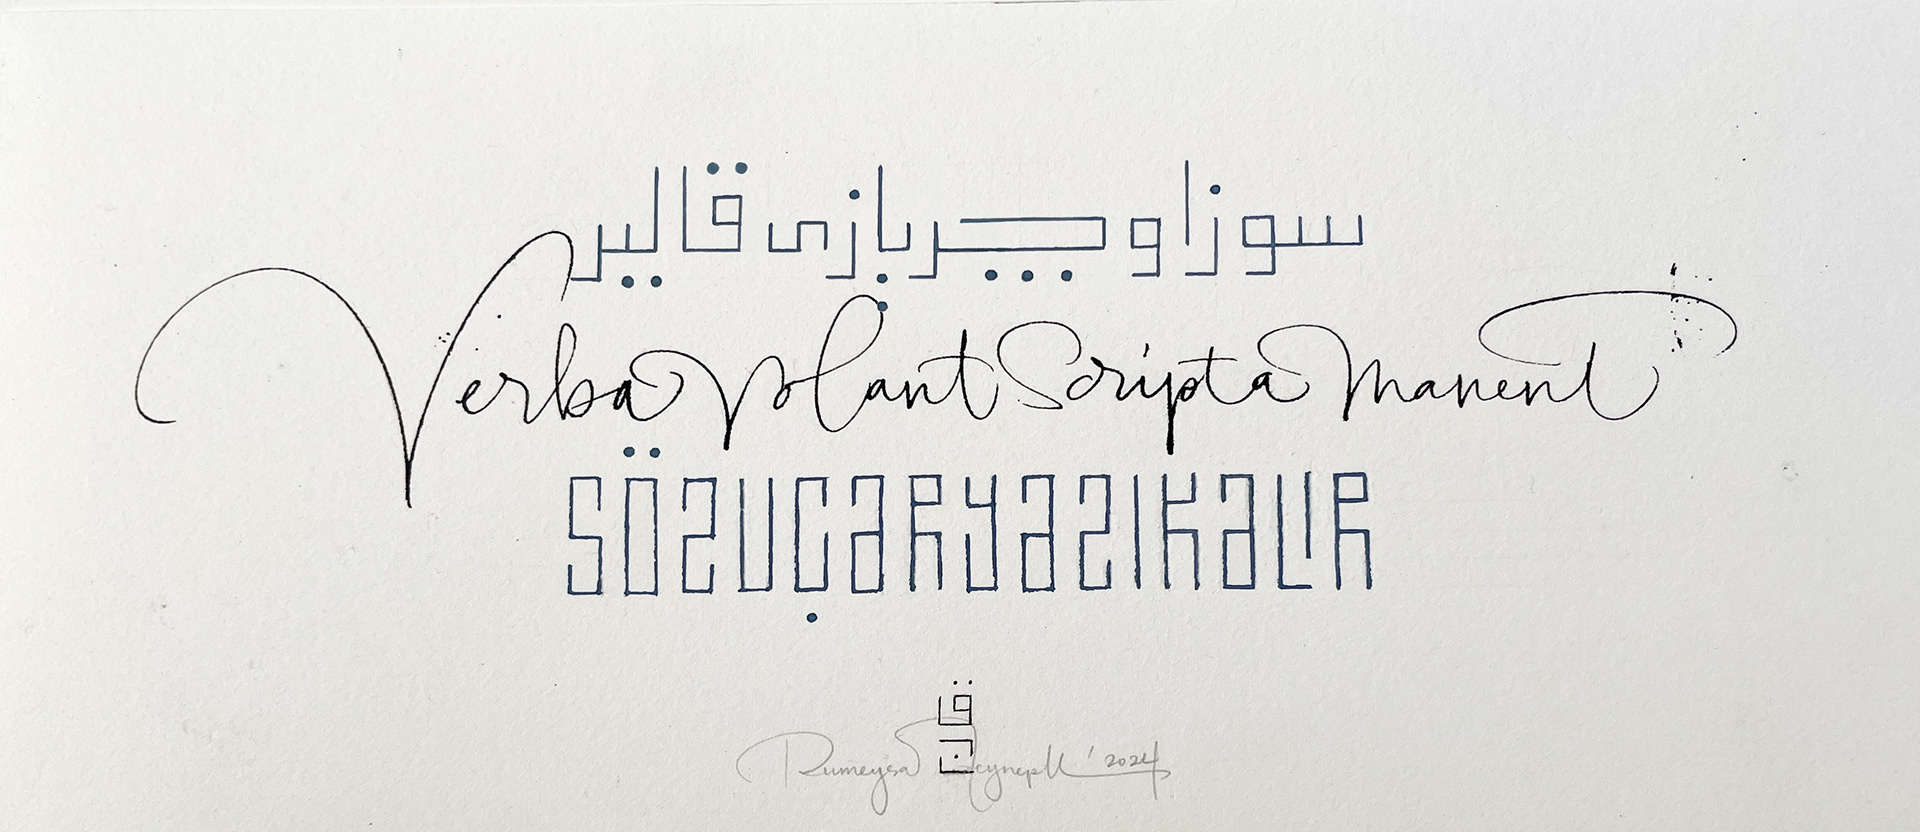 سوز اوچر يازى قالير
Verba Volant Scripta Manent
SÖZ UÇAR YAZI KALIR
Rumeysa Zeynep '2024